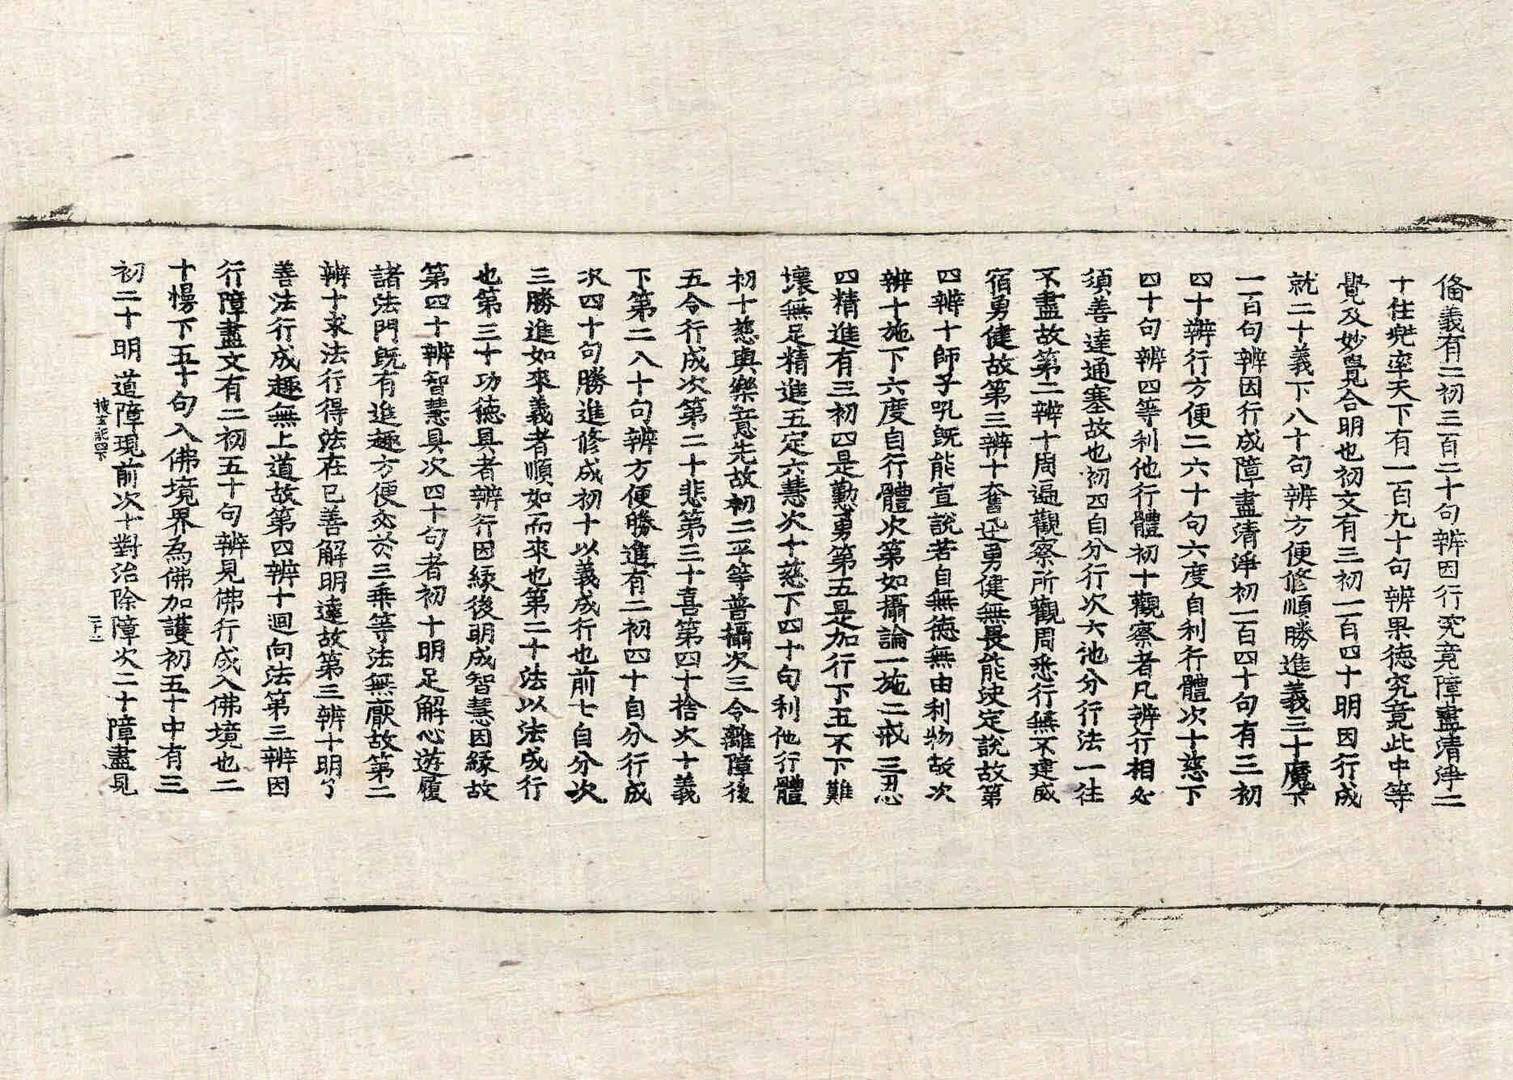 俻義有二初三百二十句辨因行究竟障盡清淨二
十住兠率天下有一百九十句辨果德究竟此中等
覺及妙覺合明也初文有三初一百四十明因行成
就二十義下八十句辨方便修順勝進義三十魔下
一百句辨因行成障盡清淨初一百四十句有三初
四十辨行方便二六十句六度自利行體次十慈下
四十句辨四等利他行體初十觀察者凡辨行相必
須善達通塞故也初四自分行次六他分行法一往
不盡故第二辨十周遍觀察所觀周悉行無不建威
宿勇健故第三辨十奮迅勇健無畏能决定說故第
四辨十師子吼既能宣說若自無德無由利物故次
辨十施下六度自行體次第如攝論一施二戒三忍
四精進有三初四是勤勇第五是加行下五不下難
壞無足精進五定六慧次十慈下四十句利他行體
初十慈與樂意先故初二平等普攝次三令離障後
五令行成次第二十悲第三十喜第四十捨次十義
下第二八十句辨方便勝進有二初四十自分行成
次四十句勝進修成初十以義成行也前七自分次
三勝進如來義者順如而來也第二十法以法成行
也第三十功德具者辨行因緣後明成智慧因緣故
第四十辨智慧具次四十句者初十明足解心遊履
諸法門既有進趣方便矣於三乘等法無猒故第二
辨十求法行得法在已善解明達故第三辨十明了
善法行成趣無上道故第四辨十迴向法第三辨因
行障盡文有二初五十句辨見佛行成入佛境也二
十慢下五十句入佛境界為佛加護初五十中有三
初二十明道障現前次十對治除障次二十障盡見
搜玄記四下
二十一